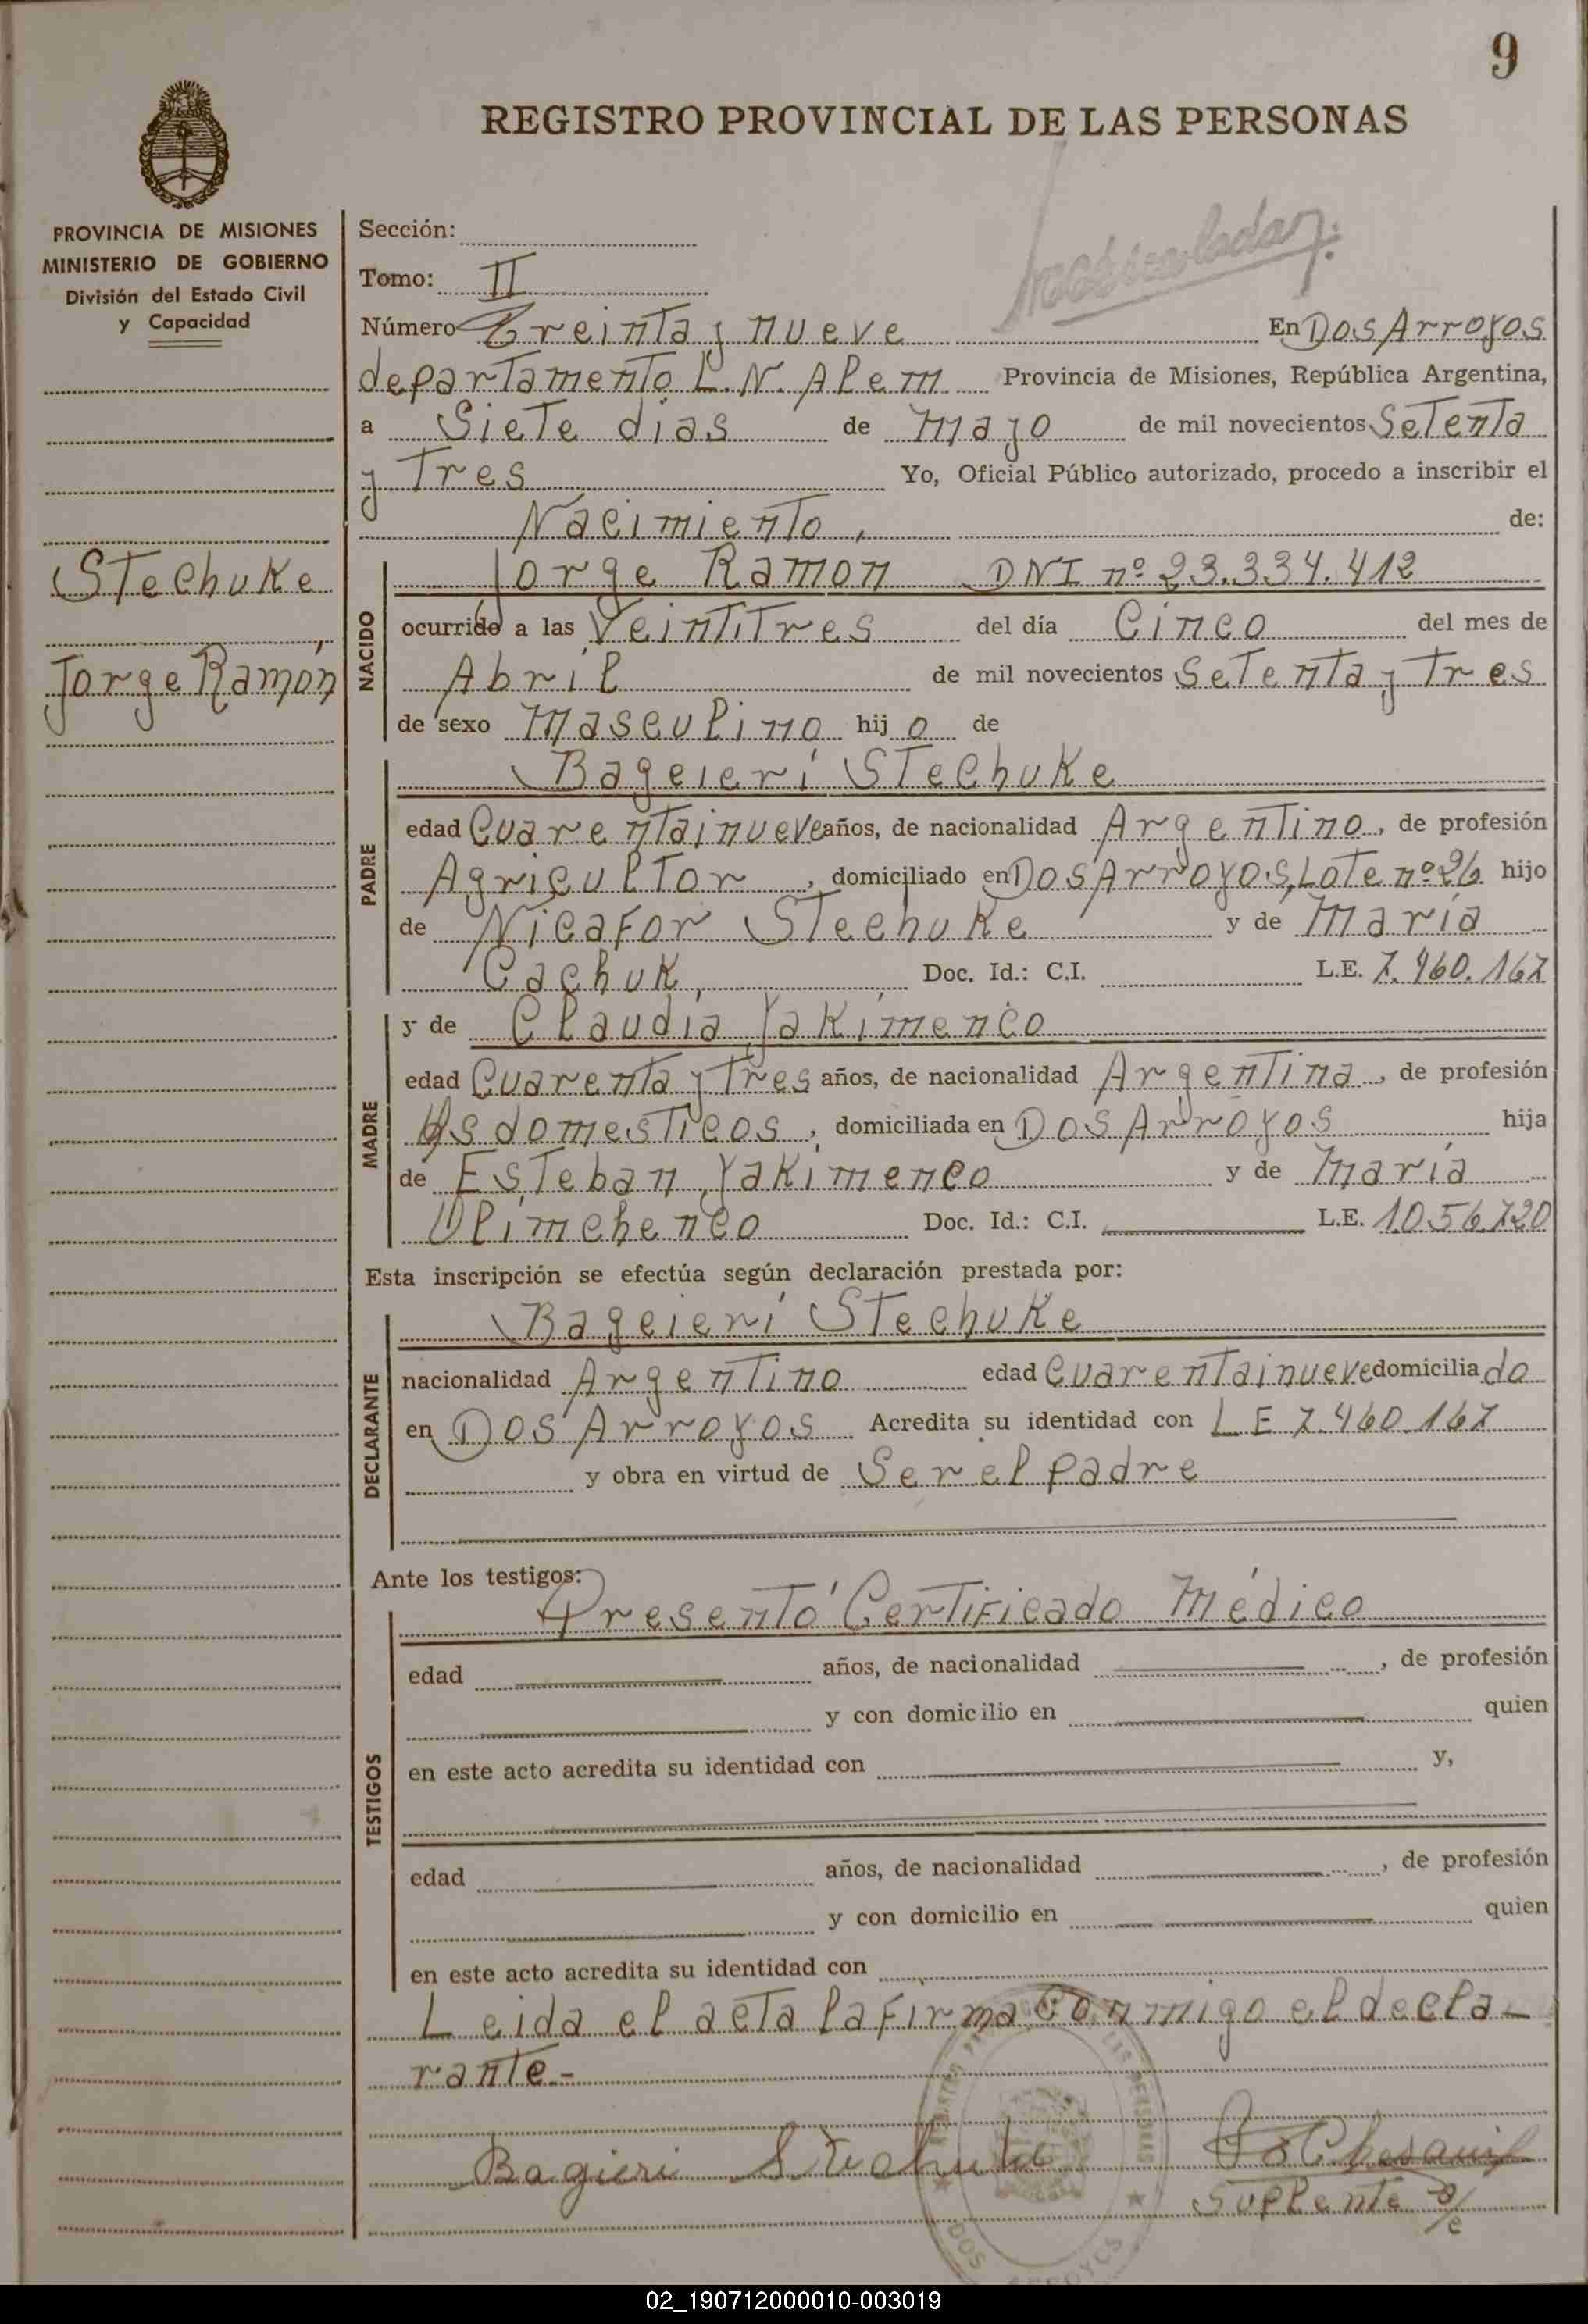 9
REGISTRO PROVINCIAL DE LAS PERSONAS
PROVINCIA DE MISIONES
MINISTERIO DE GOBIERNO
División del Estado Civil
y Capacidad
Stechuke
Jorge Ramón
Sección:
Tomo: II
Número Treinta y nueve En Dos Arroyos
departamento L.N. Alem Provincia de Misiones, República Argentina,
a Siete dias de mayo de mil novecientos Setenta
y Tres Yo, Oficial Público autorizado, procedo a inscribir el
Nacimiento, de:
NACIDO
Jorge Ramon DNI nº 23.334.412
ocurrido a las Veintitres del día Cinco del mes de
Abril de mil novecientos Setenta y Tres
de sexo masculino hijo de
PADRE
Bageieri Stechuke
edad Cuarentainueve años, de nacionalidad Argentino, de profesión
Agricultor, domiciliado en Dos Arroyos, Lote nº 26 hijo
de Nicafor Stechuke y de María
Cachuk, Doc. Id.: C.I. L.E. 7.460.167
MADRE
y de Claudia Yakimenco
edad Cuarenta y Tres años, de nacionalidad Argentina, de profesión
Qs domesticos, domiciliada en Dos Arroyos hija
de Esteban Yakimenco y de María
Olimchenco Doc. Id.: C.I. L.E. 1056720
Esta inscripción se efectúa según declaración prestada por:
DECLARANTE
Bageieri Stechuke
nacionalidad Argentino edad Cuarentainueve domiciliado
en Dos Arroyos Acredita su identidad con L E 7.460.167
y obra en virtud de Ser el padre
Ante los testigos:
TESTIGOS
Presentó Certificado Médico
edad años, de nacionalidad , de profesión
y con domicilio en quien
en este acto acredita su identidad con y,
edad años, de nacionalidad , de profesión
y con domicilio en quien
en este acto acredita su identidad con
Leida el acta la firma Conmigo el decla-
rante.-
Bagieri Stechuke
Suplente
DOS ARROYOS
02_190712000010-003019